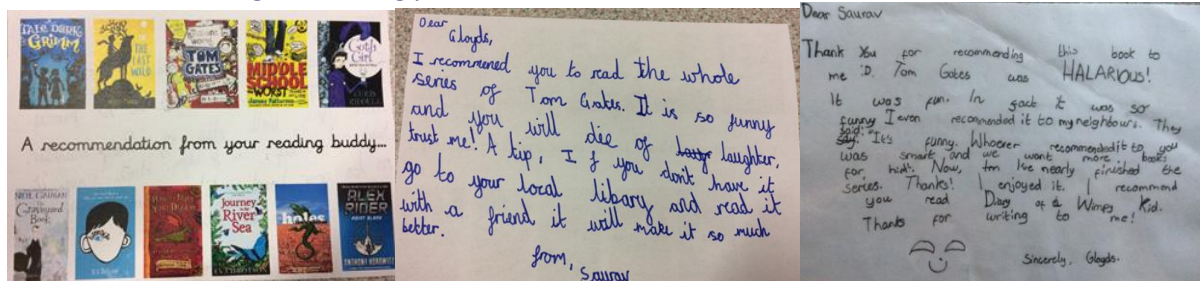 A TALE DARK &
GRIMM
THE
LAST
WILD
TOM
GATES
MIDDLE
SCHOOL
WORST
James Patterson
Goth
Girl
CHRIS
RIDDELL
A recommendation from your reading buddy...
NEIL GAIMAN
The
Graveyard
Book
Journey
to the
River
Sea
EVA IBBOTSON
holes
ALEX
RIDER
POINT BLANC
ANTHONY HOROWITZ
Dear
Gloyds,
I recommened you to read the whole
series of Tom Gates. It is so funny
and you will die of laughter,
trust me! A tip, If you don't have it
go to your local libary and read it
with a friend it will make it so much
better.
from,
Saurav
Dear Saurav
Thank You for recommending this book to
me :D. Tom Gates was HALARIOUS!
It was fun. In fact it was so
funny I even recommended it to my neighbours. They
said: "It's funny. Whoever recommended it to you
was smart and we want more books
for kids". Now, I'm I've nearly finished the
series. Thanks! I enjoyed it. I recommend
you read Diary of a Wimpy Kid.
Thanks for writing to me!
Sincerely, Gloyds.